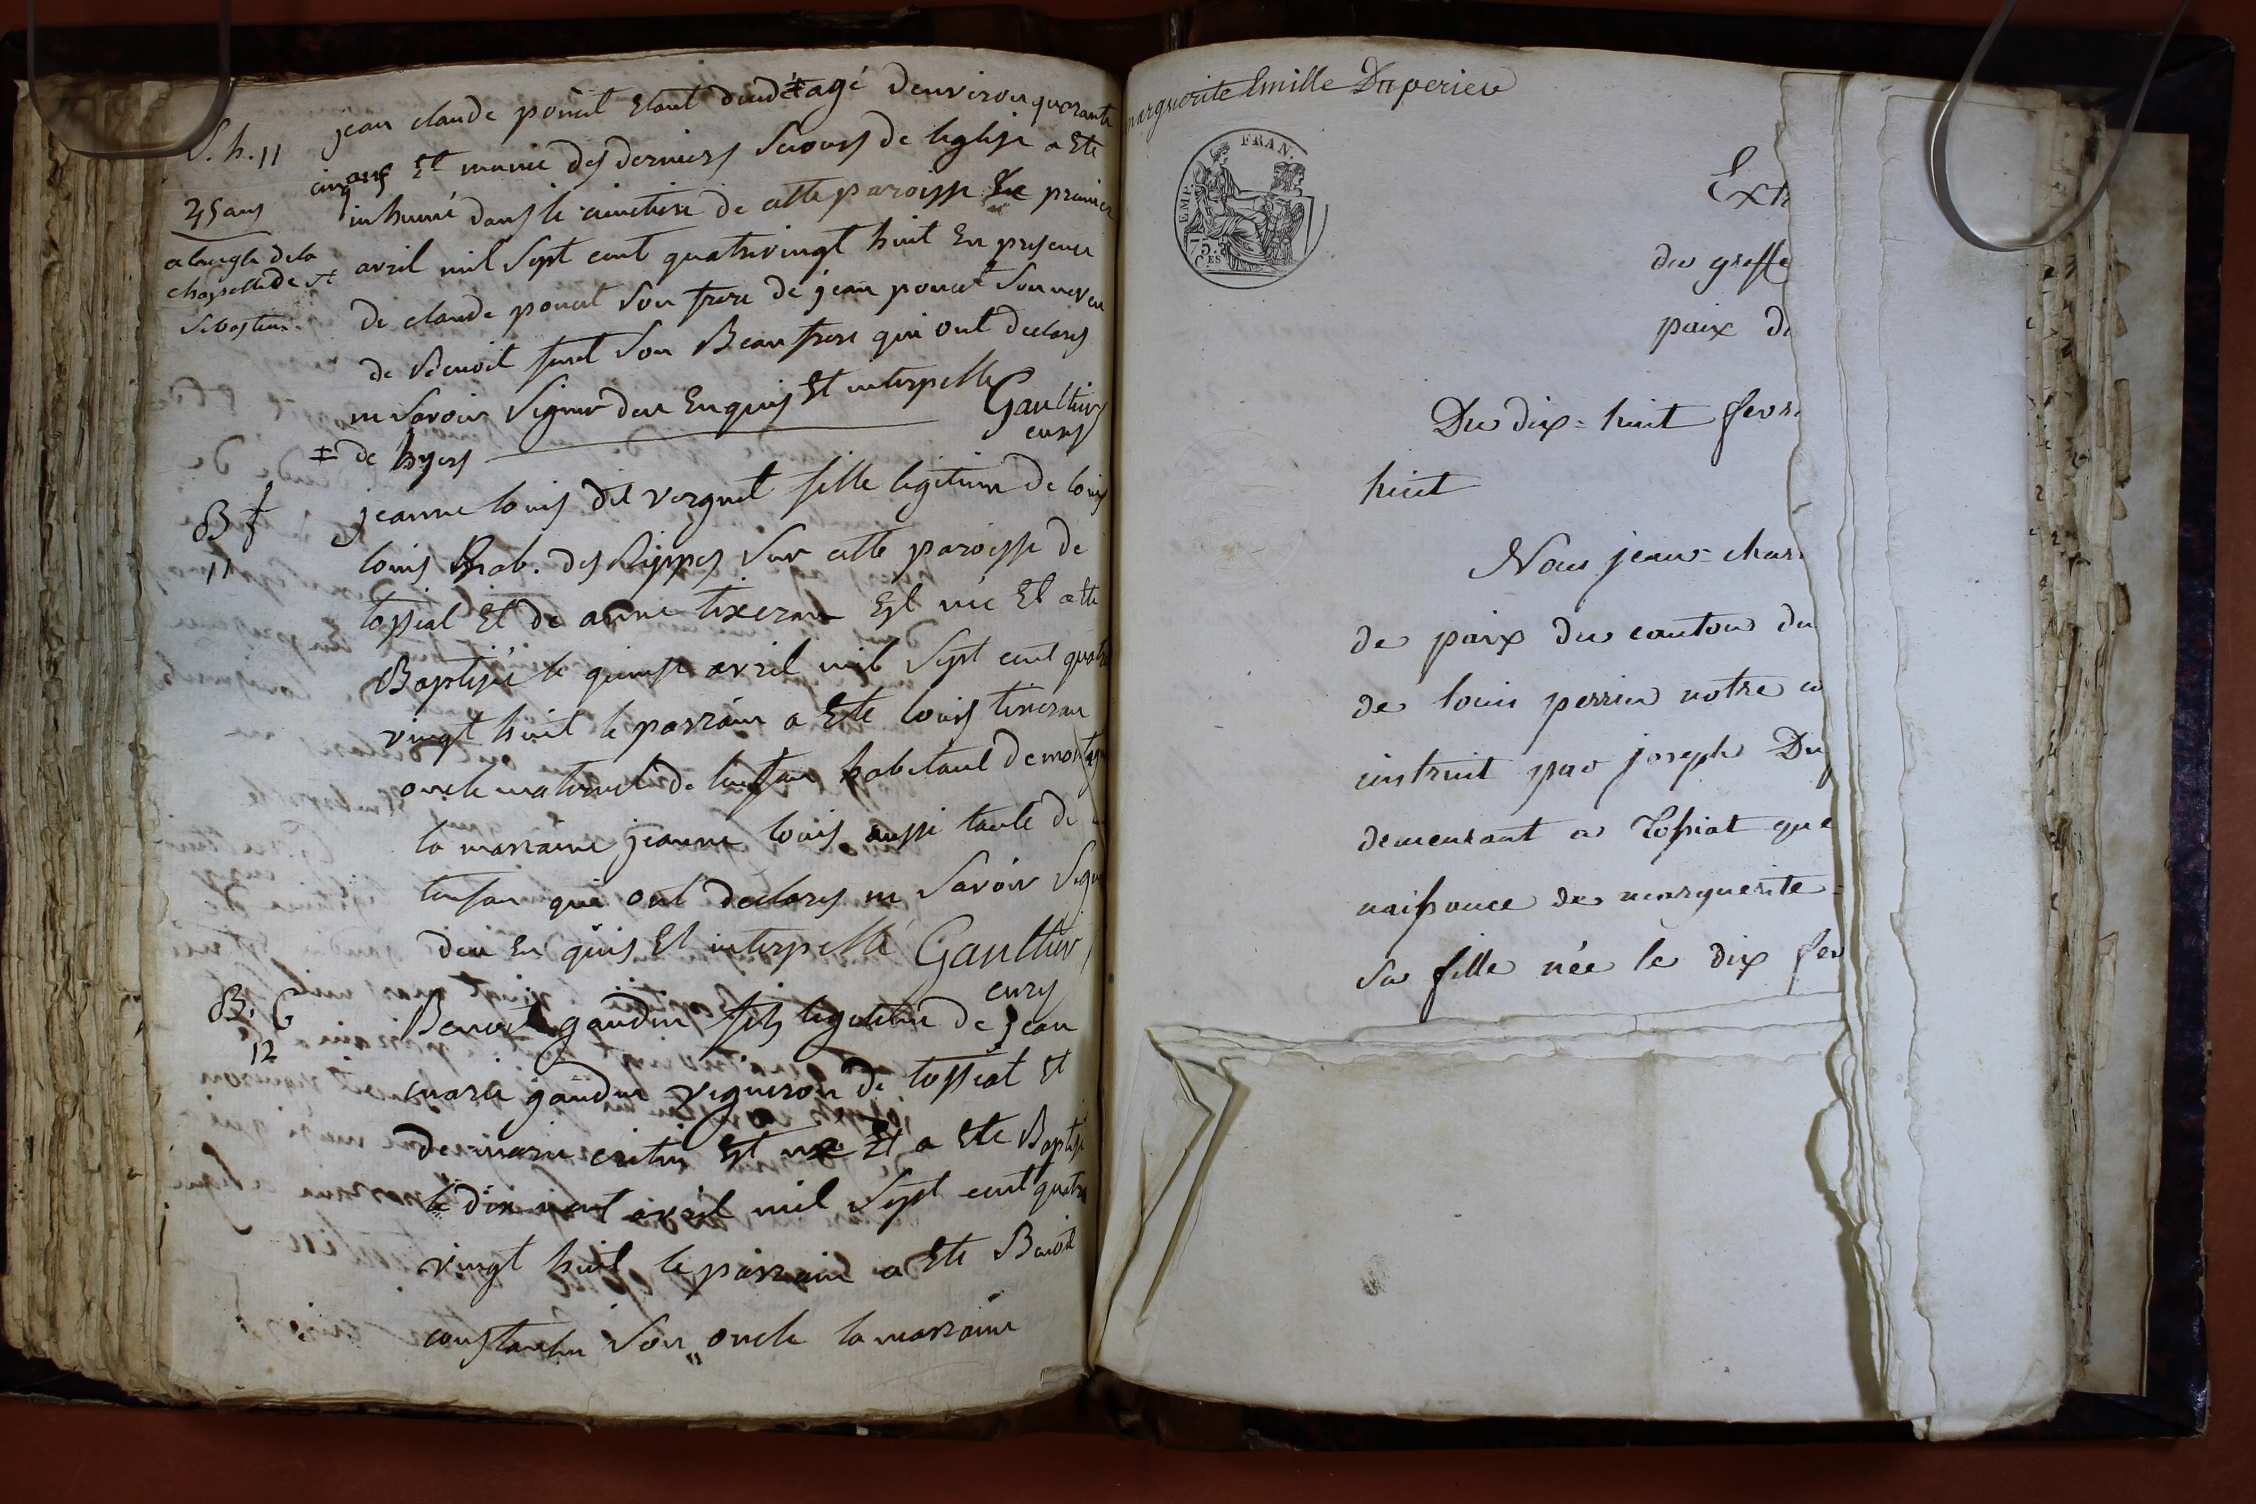 S. h. 11
45 ans
a langle dela
chapelle de St
Sebastien
jean claude poncet etant decedé ‡ agé denviron quarante
cinq ans Et munie des derniers secours de leglise a Ete
inhumé dans le cimetiere de cette paroisse le premier
avril mil sept cent quatrevingt huit En presence
de claude poncet son frere de jean poncet son neveu
de Benoit son Beaufrere qui ont declares
ne savoir signer deu Enquis Et interpellé Gaulthier
curé
‡ de hyer
B f
11
jeanne louis dit verguet fille legitime de louis
louis hab. des Rippes sur cette paroisse de
tossiat Et de anne tixeran Est née Et a ete
Baptisée le quinse avril mil sept cent quatre
vingt huit le parrain a Ete louis tixeran
oncle maternel de lenfan habitant de
la marraine jeanne louis aussi tante de
lenfan qui ont declares ne savoir signer
deu En quis Et interpellé Gaulthier
curé
B. G
12
Benoit gaudin fils legitime de jean
marie gaudin vigneron de tossiat Et
de marie Est né Et a Ete Baptisé
le dix avril mil sept cent quatre
vingt huit le parrain a Ete Benoit
constantin son oncle la marraine
marguerite Emille Duperieu
EMP. FRAN.
75.
C.ES
Ext
du greffe
paix d
Du dix=huit fevr
huit
Nous jean=char
de paix du canton du
de louis perrier notre c
instruit par joseph Du
demeurant a Tossiat que
naissance de marguerite=
sa fille née le dix fev